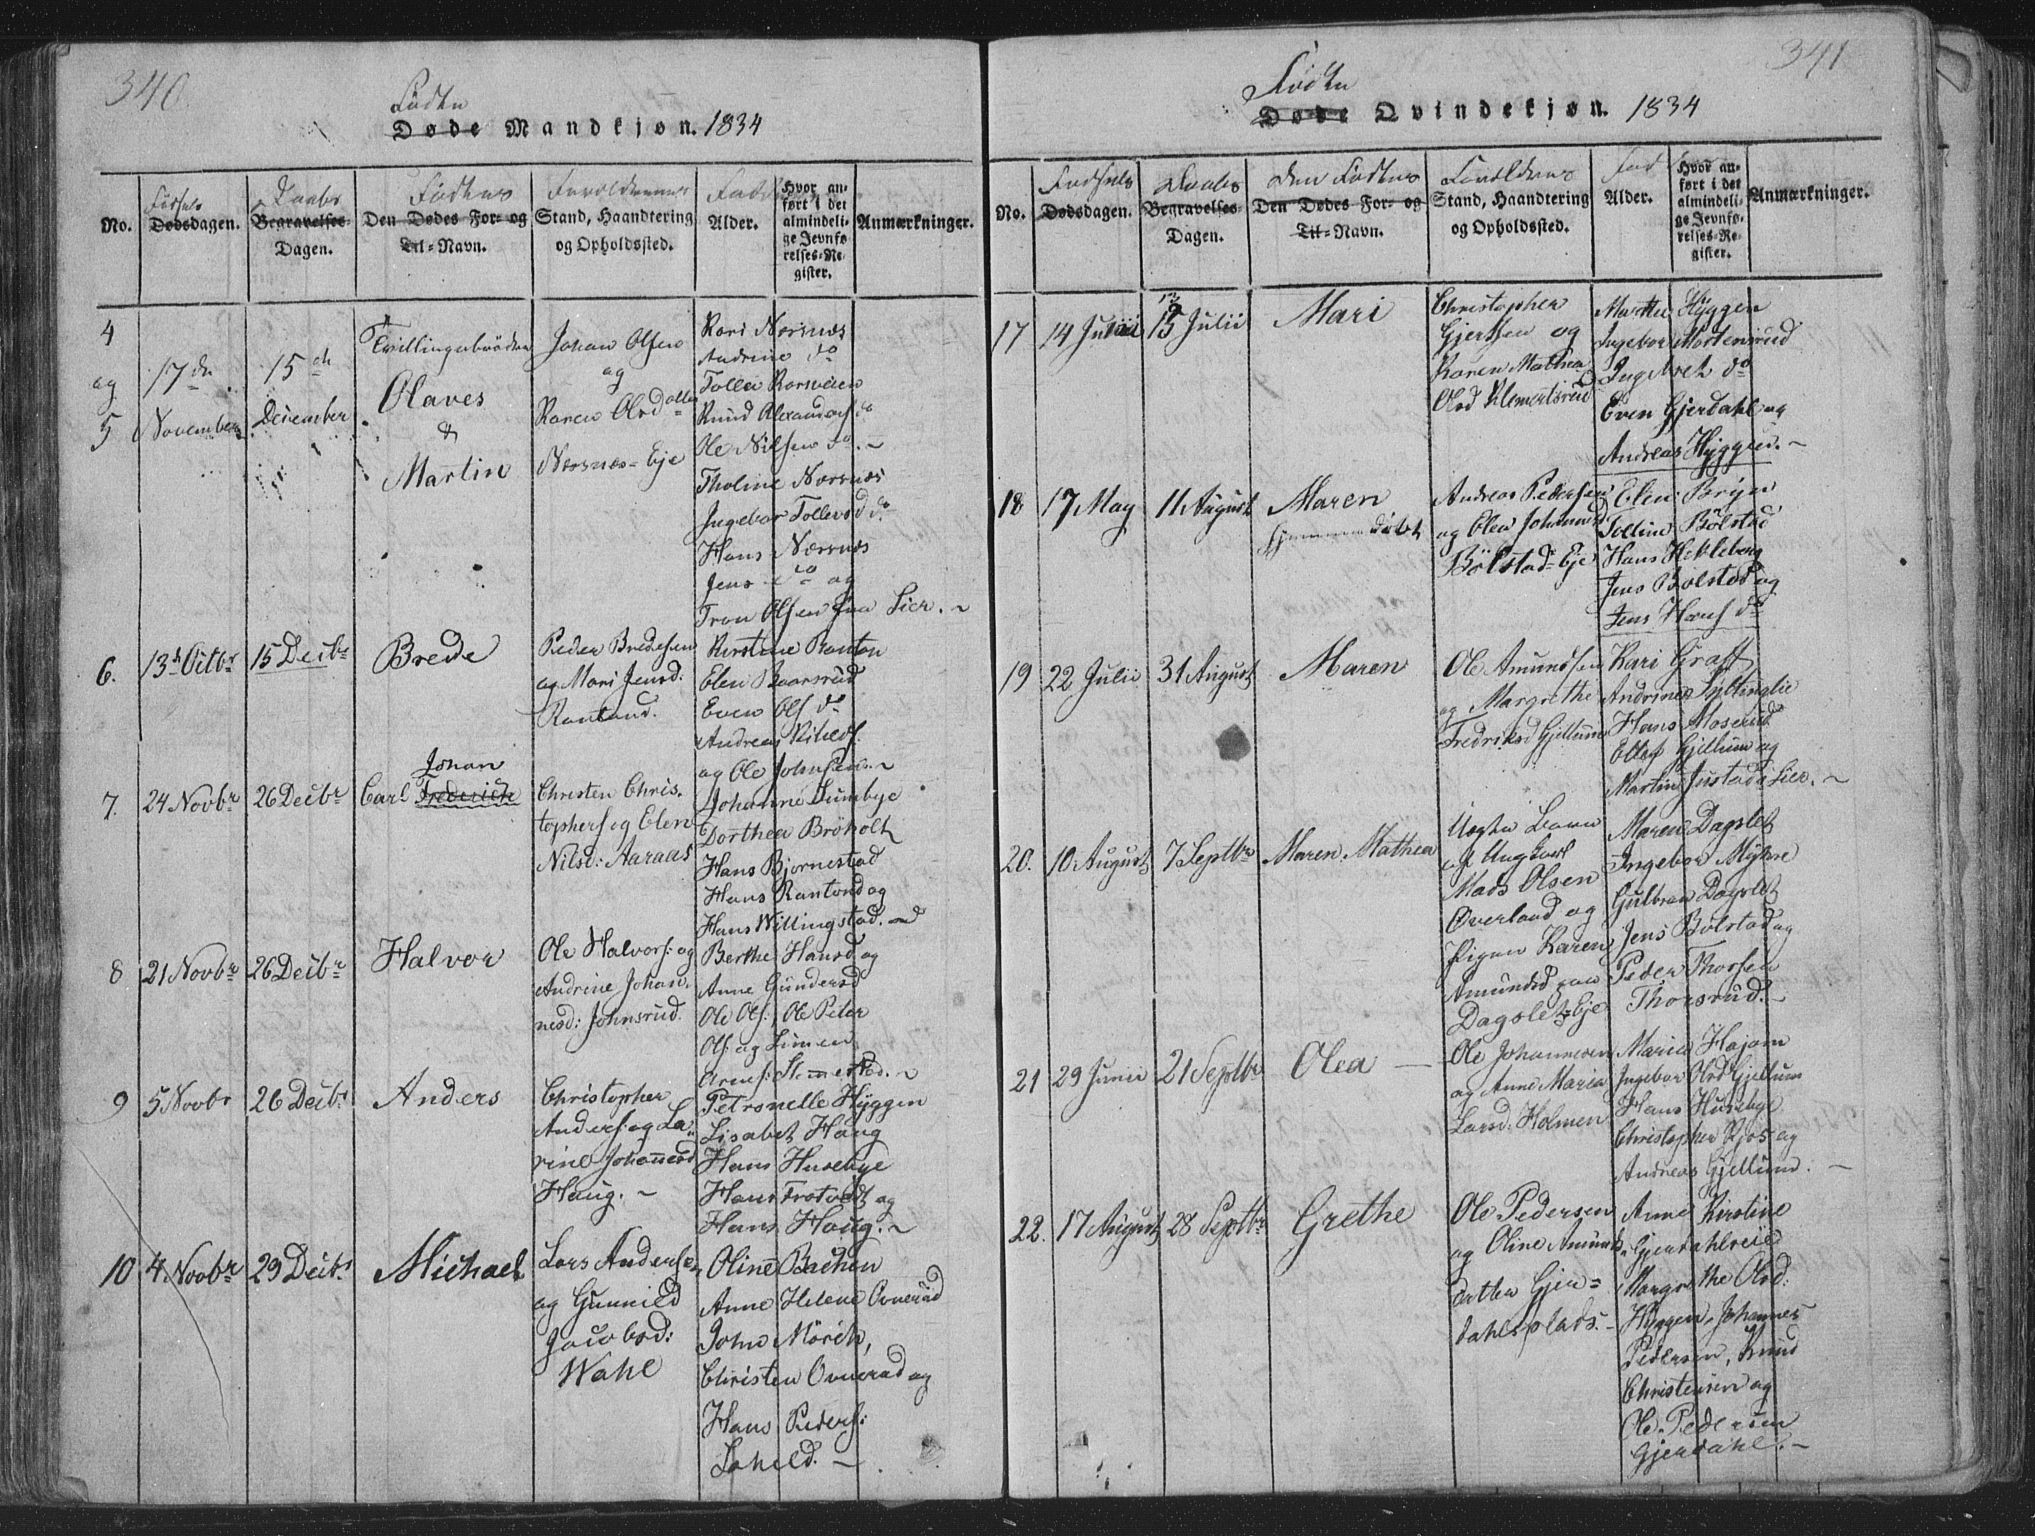 340
Fødte
Døde Mandkjøn. 1834
No.
Fødsels
Dødsdagen.
Daabs
Begravelses-
Dagen.
Fødtes
Den Dødes For- og
Til-Navn.
Forældrenes
Stand, Haandtering
og Opholdssted.
Fad
Alder.
Hvor an-
ført i det
almindeli-
ge Jevnfø-
relses-Re-
gister.
Anmærkninger.
4
og
5
17de
November
15de
December
Tvillingebrødre
Olaves
&
Martin
Johan Olsen
og
Karen Olsd
Nærsnæs-Eje
Kari Nærsnæs
Andrine do
Tollei Rorsveien
Knud Alexanders. do
Ole Nilsen do. -
Tholine Nærsnæs
Ingebor Tollevsd do
Hans Nærsnæs
Jens do og
Tron Olsen fra Lier. -
6.
13de Octbr
15 Decbr
Brede
Peder Bredesen
og Mari Jensd:
Rantond.
Kirstine Ronton
Elen Baarsrud
Even Ols do
Andreas
og Ole Johnsen. -
7.
24 Novbr
26 Decbr
Johan
Carl Frederich
Christen Chris-
tophers og Elen
Nilsd: Aaraas
Johanne Dumbye
Dorthea Brøholt
Hans Bjørnestad
Hans Rantond og
Hans Willingstad.
8
21 Novbr
26 Decbr
Halvor
Ole Halvors: og
Andrine Johan-
nesd: Johnsrud
Berthe Hansd og
Anne Gundersd
Ole Ols:, Ole Peter
Ols: og Simen
9
5 Novbr
26 Decbr
Anders
Christopher
Anders: og La-
rine Johannesd
Haug. -
Petronelle Hyggen
Lisabet Haug
Hans Husebye
Hans Frotvedt og
Hans Haug. -
10
4 Novbr
29 Decbr
Michael
Lars Andersen
og Gunnild
Jacobsd:
Wahl
Oline Bachen
Anne Helene Ovnerud
John Mörch,
Christen Ovnerud og
Hans Peders:
Loheld. -
341
Fødte
Døde Qvindekjøn. 1834
No.
Fødsels
Dødsdagen.
Daabs
Begravelses-
Dagen.
Den Fødtes
Den Dødes For- og
Til-Navn.
Forældrenes
Stand, Haandtering
og Opholdssted.
Fad
Alder.
Hvor an-
ført i det
almindeli-
ge Jevnfø-
relses-Re-
gister.
Anmærkninger.
17
14 Junii
13 Julii
Mari
Christopher
Gjertsen og
Karen Mathea
Olsd Klemertsrud
Marthe Hyggen
Ingebor Mortensrud
Ingebret do
Even Gjerdahl og
Andreas Hyggen. -
18
17 May
11 August
Maren
hjemmedøbt
Andreas Pedersen
og Elen Johansd
Bölstad-Eje
Elen Bryn
Tolline Bölstad
Hans Hekleberg
Jens Bölstad og
Jens Hans. do
19
22 Julii
31 August
Maren
Ole Amundsen
og Margrethe
Fredriksd Gjellum
Kari Graff
Andrine Syltinglie
Hans Moserud
Ellef Gjellum og
Martin Justad i Lier. -
20.
10 August
7 Septbr
Maren Mathea
Uægte Barn
af Ungkarl
Mads Olsen
Overland og
Pigen Karen
Amundsd paa
Dagslet-Eje
Maren Dagslet
Ingebor Myhre
Gulbran Dagslet
Jens Bölstad og
Peder Thorsen
Thorsrud. -
21
29 Junii
21 Septbr
Olea
Ole Johannesen
og Anne Maria
Larsd: Holmen
Maria Hajem
Ingebor Olsd Gjellum
Hans Husebye
Christopher Kjos og
Andreas Gjellum. -
22.
17 August
28 Septbr
Grethe
Ole Pedersen
og Oline Amunds-
datter Gjer-
dahlsplads. -
Anne Kirstine
Gjerdahlseie
Margrethe Olsd:
Hyggen, Johannes
Pedersen, Knud
Christensen og
Ole Pedersen
Gjerdahl. -